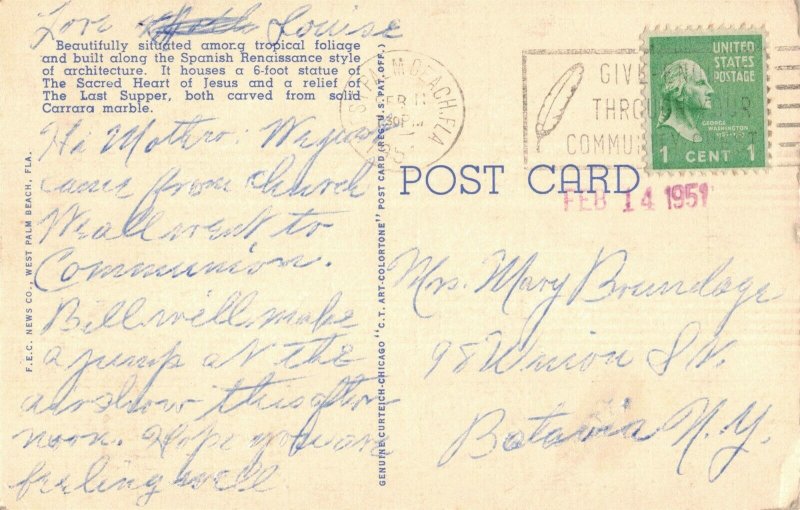 Love Louise
Beautifully situated among tropical foliage
and built along the Spanish Renaissance style
of architecture. It houses a 6-foot statue of
The Sacred Heart of Jesus and a relief of
The Last Supper, both carved from solid
Carrara marble.
Hi Mother: We just
came from church
We all went to
Communion.
Bill will make
a jump at the
airshow this after
noon. Hope you are
feeling well
F.E.C. NEWS CO., WEST PALM BEACH, FLA.
GENUINE CURTEICH-CHICAGO "C.T. ART-COLORTONE" POST CARD (REG. U.S. PAT. OFF.)
PALM BEACH, FLA
FEB 11
PM
GIVE
THROUGH YOUR
COMMUNITY
UNITED
STATES
POSTAGE
GEORGE
WASHINGTON
1 CENT 1
POST CARD
FEB 14 1951
Mrs. Mary Brundage
98 Union St.
Batavia N.Y.